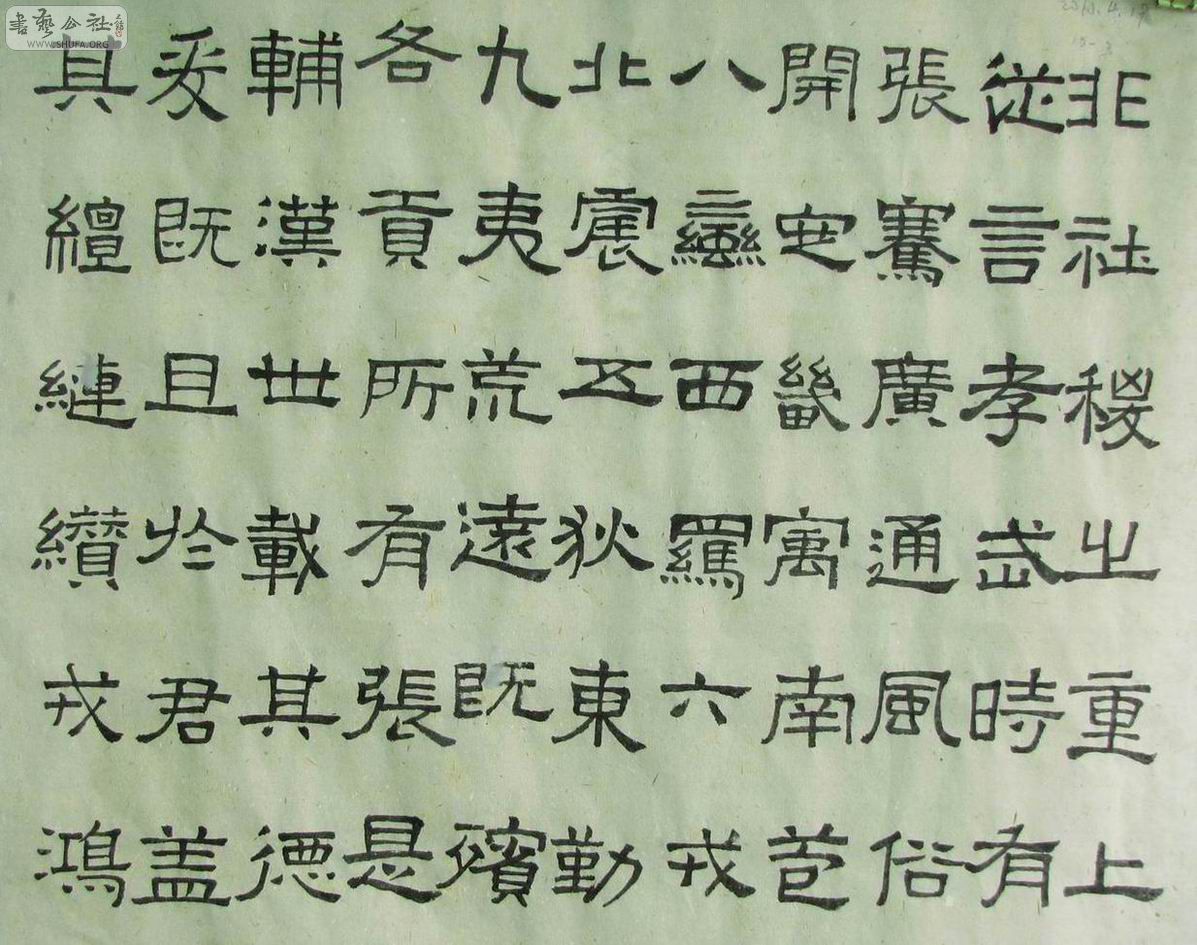 書藝公社
WWW.SHUFA.ORG
非社稷之重上
從言孝武時有
張騫廣通風俗
開定畿寓南苞
八蠻西羈六戎
北震五狄東勤
九夷荒遠既殯
各貢所有張是
輔漢世載其德
爰既且於君盖
其繵縺纘戎鴻